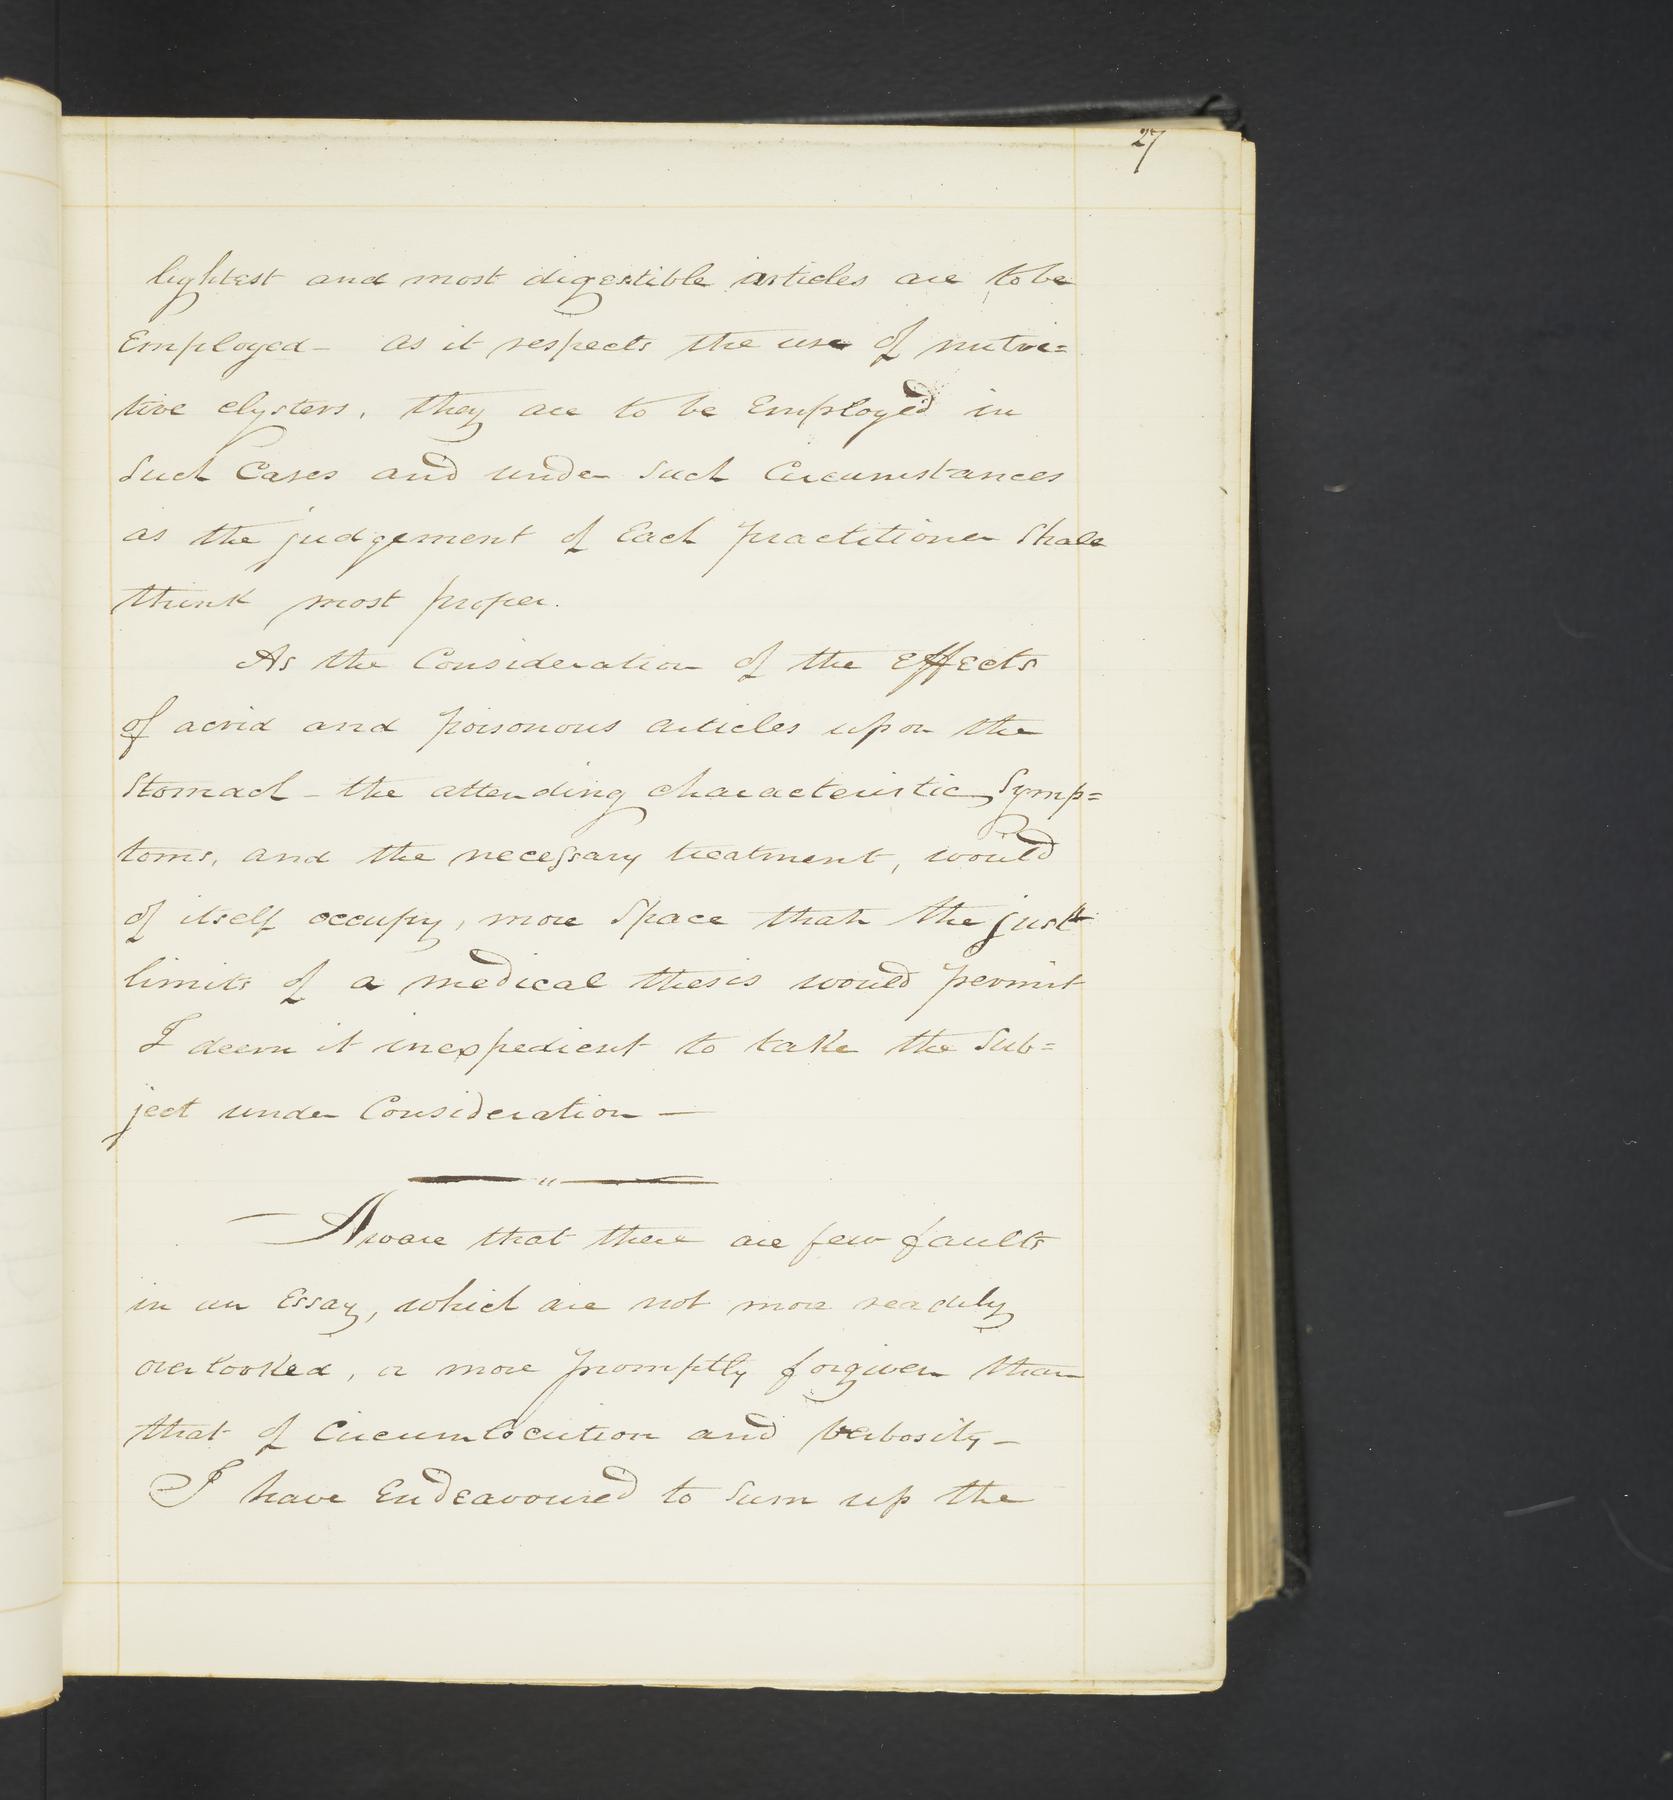 27
lightest and most digestible articles are to be
Employed – as it respects the use of nutri=
tive clysters, they are to be Employed in
Such Cases and under Such Circumstances
as the judgement of Each practitioner Shall
think most proper.
As the Consideration of the Effects
of acrid and poisonous articles upon the
Stomach – the attending characteristic Symp=
toms, and the necessary treatment, would
of itself occupy, more Space than the just
limits of a medical thesis would permit
I deem it inexpedient to take the Sub=
ject under Consideration —
— " —
— Aware that there are few faults
in an Essay, which are not more readily
overlooked, or more promptly forgiven than
that of Circumlocution and verbosity –
I have Endeavoured to Sum up the